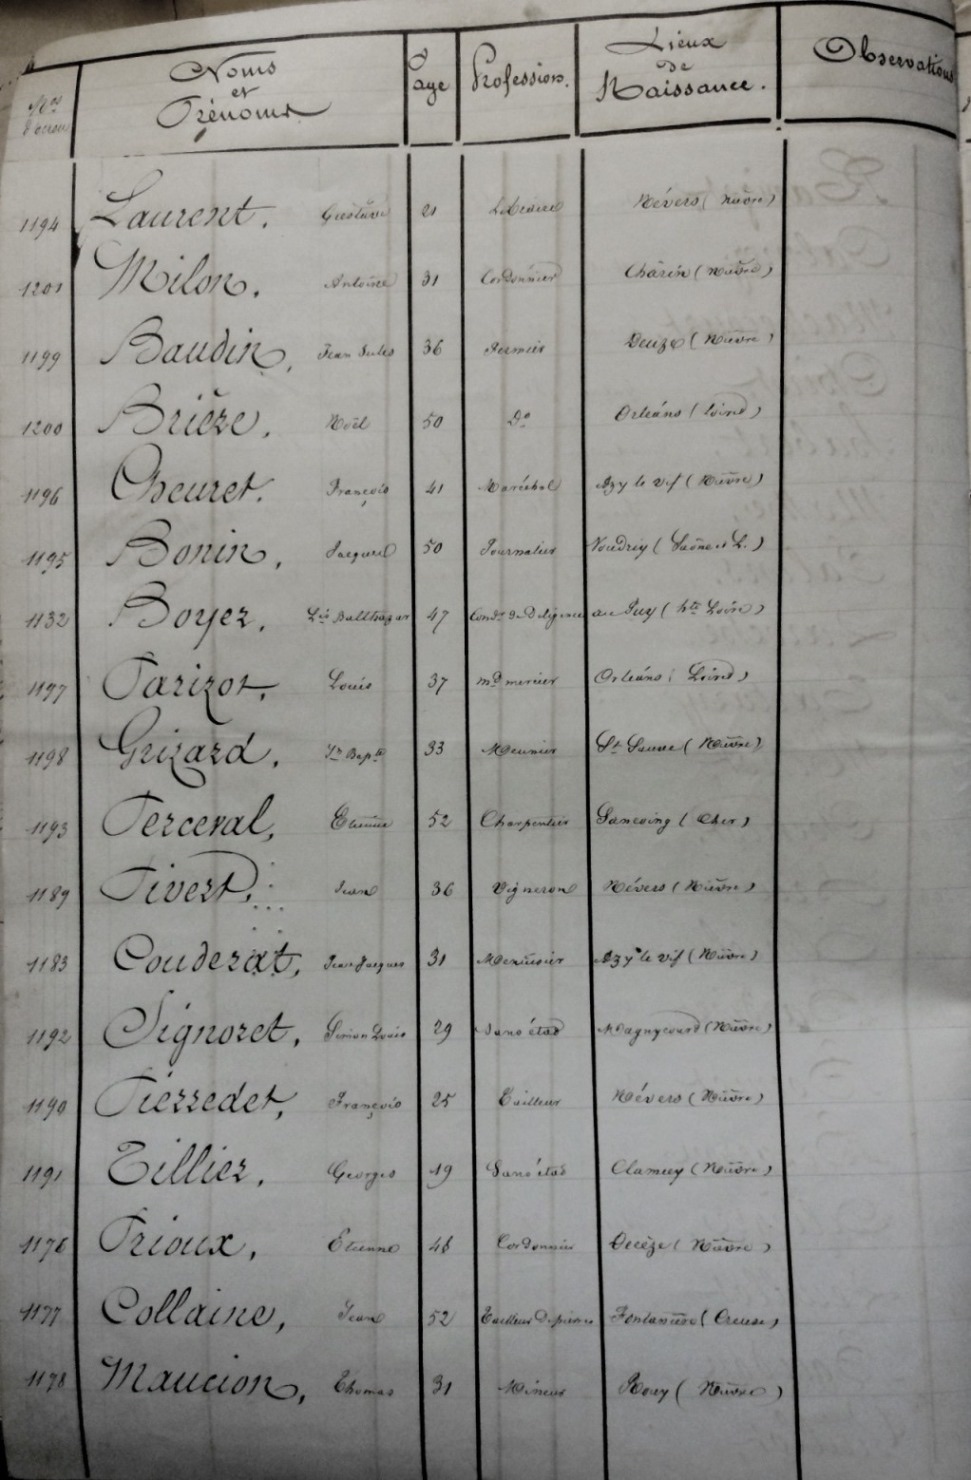 Nos d'écrou Noms et Prénoms Age Profession. Lieux de Naissance. Observations
1194 Laurent, Gustave 21 Névers (Nièvre)
1201 Milon, Antoine 31 Cordonnier (Nièvre)
1199 Baudin, Jean Jules 36 Fermier (Nièvre)
1200 Brière, Noël 50 Do Orléans (Loiret)
1196 Cheuret, François 41 Maréchal Azy le vif (Nièvre)
1195 Bonin, Jacques 50 Journalier (Saône et L.)
1132 Boyer, Balthazar 47 Condr de Diligence au Puy (hte Loire)
1197 Parizot, Louis 37 md mercier Orléans (Loiret)
1198 Grizard, Jn Bapte 33 Meunier (Nièvre)
1193 Perceval, Etienne 52 Charpentier Sancoing (Cher)
1189 Pivert, Jean 36 Vigneron Névers (Nièvre)
1183 Couderat, Jean Jacques 31 Menuisier Azy le vif (Nièvre)
1192 Signoret, Simon Louis 29 Sans état Magnycourt (Nièvre)
1190 Pierredet, François 25 Tailleur Névers (Nièvre)
1191 Tillier, Georges 19 Sans état Clamecy (Nièvre)
1176 Prioux, Etienne Cordonnier Decèze (Nièvre)
1177 Collaine, Jean 52 Tailleur de pierres (Creuse)
1178 Maucion, Thomas 31 Mineur Rouy (Nièvre)